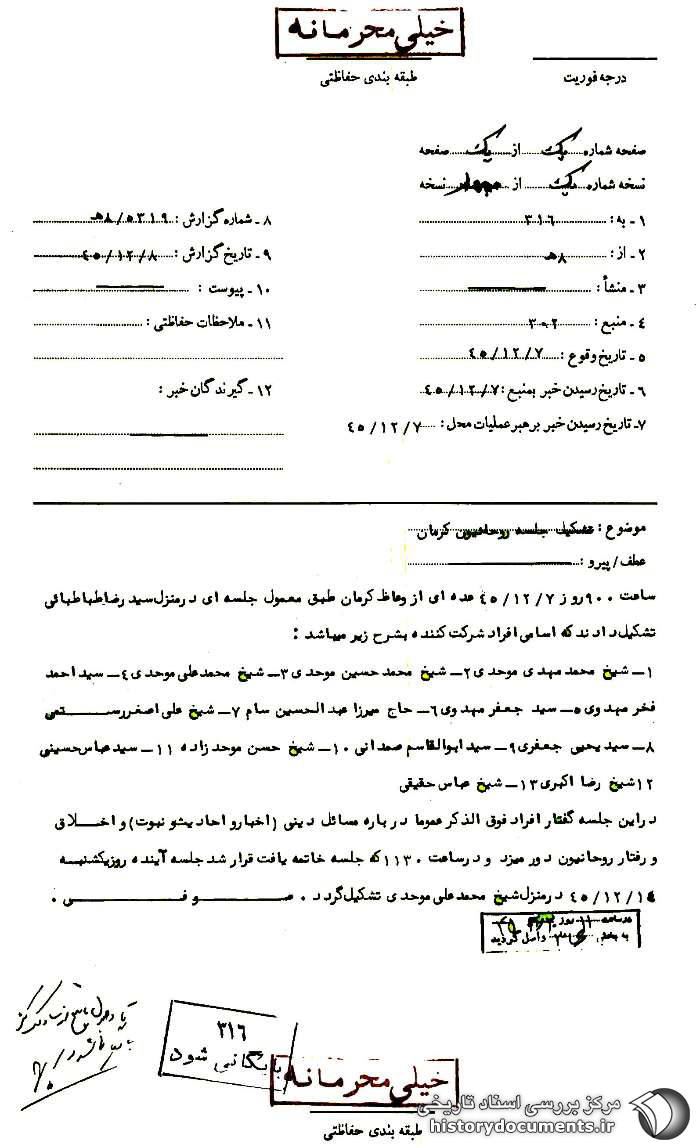 خیلی محرمانه
طبقه بندی حفاظتی
درجه فوریت
صفحه شماره یک از یک صفحه
نسخه شماره یک از چهار نسخه
۱ - به : ۳۱۶
۲ - از : ۸ هـ
۳ - منشأ :
۴ - منبع : ۳۰۲
۵ - تاریخ وقوع : ۴۵/۱۲/۷
۶ - تاریخ رسیدن خبر بمنبع : ۴۵/۱۲/۷
۷- تاریخ رسیدن خبر برهبر عملیات محل : ۴۵/۱۲/۷
۸ - شماره گزارش : ۸/۵۳۱۹هـ
۹ - تاریخ گزارش : ۴۵/۱۲/۸
۱۰ - پیوست :
۱۱ - ملاحظات حفاظتی :
۱۲ - گیرندگان خبر :
موضوع : تشکیل جلسه روحانیون کرمان
عطف / پیرو :
ساعت ۹۰۰ روز ۴۵/۱۲/۷ عده ای از وعاظ کرمان طبق معمول جلسه ای در منزل سید رضا طباطبائی
تشکیل دادند که اسامی افراد شرکت کننده بشرح زیر میباشد :
۱ــ شیخ محمد مهدی موحدی ۲ــ شیخ محمد حسین موحدی ۳ــ شیخ محمدعلی موحدی ۴ــ سید احمد
فخر مهدوی ۵ــ سید جعفر مهدوی ۶ــ حاج میرزا عبدالحسین سام ۷ــ شیخ علی اصغر رستمی
۸ــ سید یحیی جعفری ۹ــ سید ابوالقاسم صمدانی ۱۰ــ شیخ حسن موحد زاده ۱۱ــ سید عباس حسینی
۱۲ شیخ رضا اکبری ۱۳ــ شیخ عباس حقیقی
در این جلسه گفتار افراد فوق الذکر عموما درباره مسائل دینی (اخبار و احادیث و نبوت) و اخلاق
و رفتار روحانیون دور میزد و در ساعت ۱۱۳۰ که جلسه خاتمه یافت قرار شد جلسه آینده روز یکشنبه
۴۵/۱۲/۱۴ در منزل شیخ محمد علی موحدی تشکیل گردد . صوفی .
در ساعت ۱۱ روز
به بخش ۳۱۶ واصل گردید
۳۱۶
بایگانی شود
خیلی محرمانه
طبقه بندی حفاظتی
مرکز بررسی اسناد تاریخی
historydocuments.ir